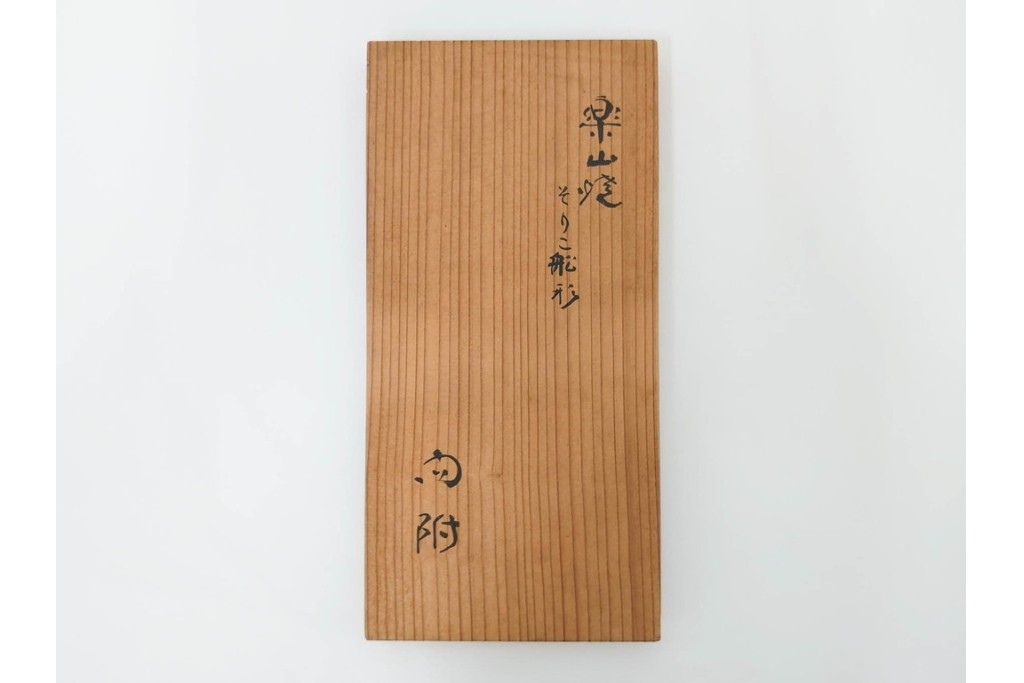 楽山焼
そりこ舩形
向附